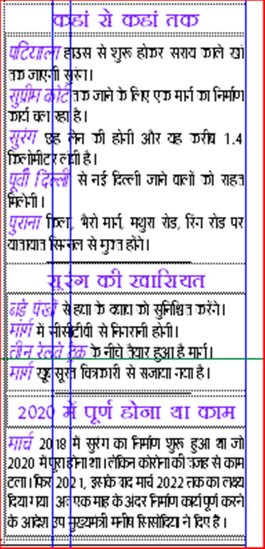 कहां से कहां तक
पटियाला हाउस से शुरू होकर सराय काले खां
तक जाएगी सुरंग।
सुप्रीम कोर्ट तक जाने के लिए एक मार्ग का निर्माण
कार्य चल रहा है।
सुरंग छह लेन की होगी और यह करीब 1.4
किलोमीटर लंबी है।
पूर्वी दिल्ली से नई दिल्ली जाने वालों को राहत
मिलेगी।
पुराना किला, भैरो मार्ग, मथुरा रोड, रिंग रोड पर
यातायात सिग्नल से मुक्त होंगे।
सुरंग की खासियत
बड़े पंखों से हवा के दबाव को सुनिश्चित करेंगे।
मार्ग में सीसीटीवी से निगरानी होगी।
तीन रेलवे ट्रैक के नीचे तैयार हुआ है मार्ग।
मार्ग खूबसूरत चित्रकारी से सजाया गया है।
2020 में पूर्ण होना था काम
मार्च 2018 में सुरंग का निर्माण शुरू हुआ था जो
2020 में पूरा होना था। लेकिन कोरोना की वजह से काम
टला। फिर 2021, इसके बाद मार्च 2022 तक का लक्ष्य
दिया गया अब एक माह के अंदर निर्माण कार्य पूर्ण करने
के आदेश उप मुख्यमंत्री मनीष सिसोदिया ने दिए है।